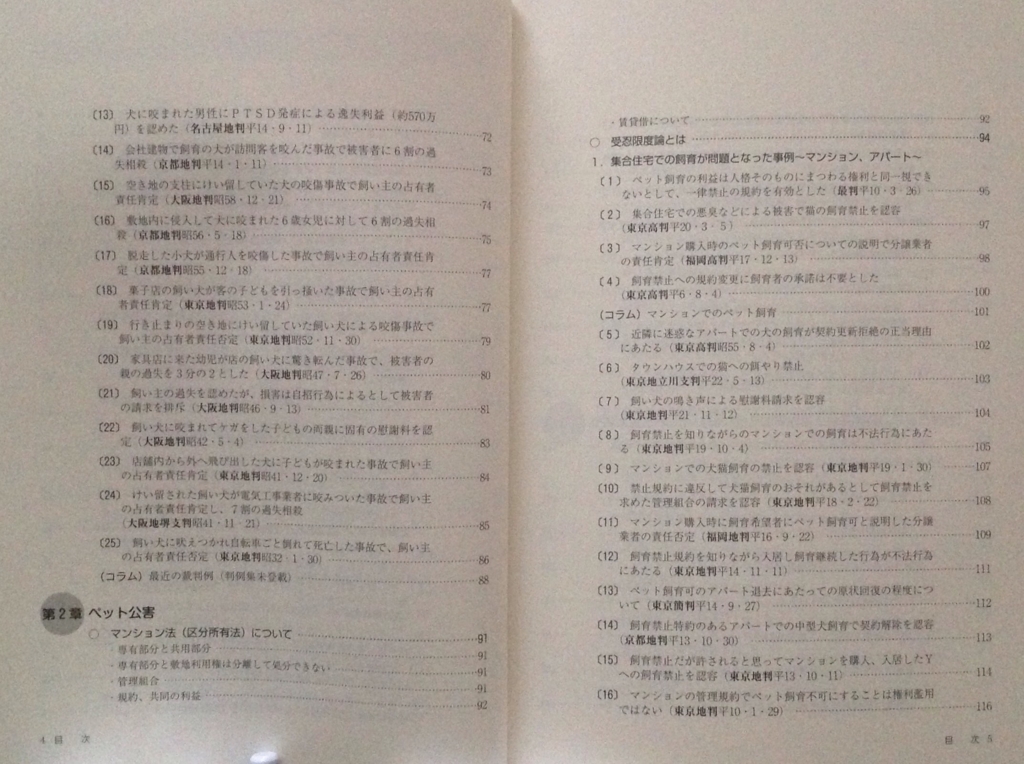 〔13〕 犬に咬まれた男性にＰＴＳＤ発症による逸失利益（約570万
円）を認めた（名古屋地判平14・9・11）…………72
〔14〕 会社建物で飼育の犬が訪問客を咬んだ事故で被害者に６割の過
失相殺（京都地判平14・1・11）…………73
〔15〕 空き地の支柱にけい留していた犬の咬傷事故で飼い主の占有者
責任肯定（大阪地判昭58・12・21）…………74
〔16〕 敷地内に侵入して犬に咬まれた６歳女児に対して６割の過失相
殺（京都地判昭56・5・18）…………75
〔17〕 脱走した小犬が通行人を咬傷した事故で飼い主の占有者責任肯
定（京都地判昭55・12・18）…………77
〔18〕 菓子店の飼い犬が客の子どもを引っ掻いた事故で飼い主の占有
者責任肯定（東京地判昭53・1・24）…………77
〔19〕 行き止まりの空き地にけい留していた飼い犬による咬傷事故で
飼い主の占有者責任否定（東京地判昭52・11・30）…………79
〔20〕 家具店に来た幼児が店の飼い犬に驚き転んだ事故で、被害者の
親の過失を３分の２とした（大阪地判昭47・7・26）…………80
〔21〕 飼い主の過失を認めたが、損害は自招行為によるとして被害者
の請求を排斥（大阪地判昭46・9・13）…………81
〔22〕 飼い犬に咬まれてケガをした子どもの両親に固有の慰謝料を認
定（大阪地判昭42・5・4）…………83
〔23〕 店舗内から外へ飛び出した犬に子どもが咬まれた事故で飼い主
の占有者責任肯定（東京地判昭41・12・20）…………84
〔24〕 けい留された飼い犬が電気工事業者に咬みついた事故で飼い主
の占有者責任肯定し、７割の過失相殺
（大阪地堺支判昭41・11・21）…………85
〔25〕 飼い犬に吠えつかれ自転車ごと倒れて死亡した事故で、飼い主
の占有者責任否定（東京地判昭32・1・30）…………86
（コラム）最近の裁判例（判例集未登載）…………88
第２章 ペット公害
○ マンション法（区分所有法）について…………91
・専有部分と共用部分…………91
・専有部分と敷地利用権は分離して処分できない…………91
・管理組合…………91
・規約、共同の利益…………92
4 目 次
・賃貸借について…………92
○ 受忍限度論とは…………94
1．集合住宅での飼育が問題となった事例〜マンション、アパート〜
〔1〕 ペット飼育の利益は人格そのものにまつわる権利と同一視でき
ないとして、一律禁止の規約を有効とした（最判平10・3・26）…………95
〔2〕 集合住宅での悪臭などによる被害で猫の飼育禁止を認容
（東京高判平20・3・5）…………97
〔3〕 マンション購入時のペット飼育可否についての説明で分譲業者
の責任肯定（福岡高判平17・12・13）…………98
〔4〕 飼育禁止への規約変更に飼育者の承諾は不要とした
（東京高判平6・8・4）…………100
（コラム）マンションでのペット飼育…………101
〔5〕 近隣に迷惑なアパートでの犬の飼育が契約更新拒絶の正当理由
にあたる（東京高判昭55・8・4）…………102
〔6〕 タウンハウスでの猫への餌やり禁止
（東京地立川支判平22・5・13）…………103
〔7〕 飼い犬の鳴き声による慰謝料請求を認容
（東京地判平21・11・12）…………104
〔8〕 飼育禁止を知りながらのマンションでの飼育は不法行為にあた
る（東京地判平19・10・4）…………105
〔9〕 マンションでの犬猫飼育の禁止を認容（東京地判平19・1・30）…………107
〔10〕 禁止規約に違反して犬猫飼育のおそれがあるとして飼育禁止を
求めた管理組合の請求を認容（東京地判平18・2・22）…………108
〔11〕 マンション購入時に飼育希望者にペット飼育可と説明した分譲
業者の責任否定（福岡地判平16・9・22）…………109
〔12〕 飼育禁止規約を知りながら入居し飼育継続した行為が不法行為
にあたる（東京地判平14・11・11）…………111
〔13〕 ペット飼育可のアパート退去にあたっての原状回復の程度につ
いて（東京簡判平14・9・27）…………112
〔14〕 飼育禁止特約のあるアパートでの中型犬飼育で契約解除を認容
（京都地判平13・10・30）…………113
〔15〕 飼育禁止だが許されると思ってマンションを購入、入居したＹ
への飼育禁止を認容（東京地判平13・10・11）…………114
〔16〕 マンションの管理規約でペット飼育不可にすることは権利濫用
ではない（東京地判平10・1・29）…………116
目 次 5